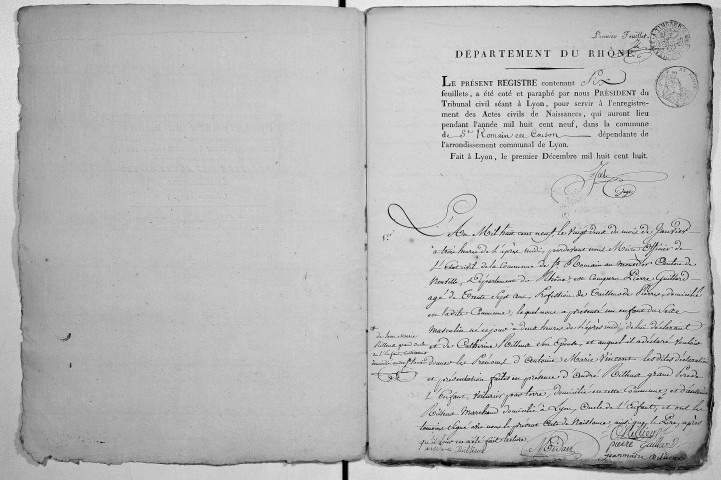 Premier Feuillet.
DÉPARTEMENT DU RHÔNE
LE PRÉSENT REGISTRE contenant Six
feuillets, a été coté et paraphé par nous PRÉSIDENT du
Tribunal civil séant à Lyon, pour servir à l'enregistre-
ment des Actes civils de Naissances, qui auront lieu
pendant l'année mil huit cent neuf, dans la commune
de St Romain en dépendante de
l'arrondissement communal de Lyon.
Fait à Lyon, le premier Décembre mil huit cent huit.
L'An Mil huit cent neuf le vingt deux du mois de Janvier
à trois heures de l'après midi, pardevant nous Maire Officier de
L'Etat civil de la Commune de St Romain au mont d'or Canton de
Neuville, Département du Rhône, est comparu Pierre Guillard
agé de Trente Sept ans, Profession de Tailleur de Pierre, domicilié
en ladite Commune, lequel nous a présenté un enfant du Sexe
masculin né ce jour à deux heures de l'après midi, de lui déclarant
et de Catherine son Epouse, et auquel il a déclaré vouloir
donner les Prénoms d'Antoine Marie Vincent, lesdites déclaration
et présentation faites en présence d'André grand
L'Enfant, voiturier par terre, domicilié en cette Commune, et d'Antoine
Marchand domicilié à Lyon, Oncle de L'Enfant, et ont les
témoins signé avec nous le présent acte de Naissance, ainsi que le Père, après
qu'il leur en a été fait lecture.